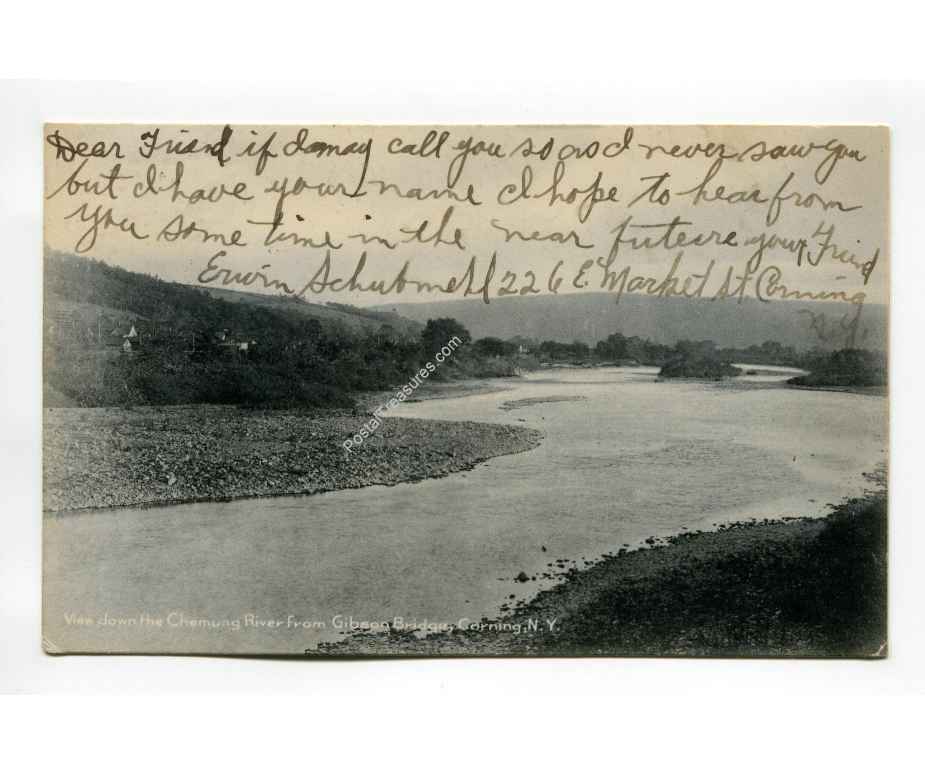 Dear Friend if I may call you so as I never saw you
but I have your name I hope to hear from
you some time in the near future your Friend
Erwin 226 E. Market St Corning
N.Y.
PostalTreasures.com
View down the Chemung River from Gibson Bridge, Corning, N.Y.